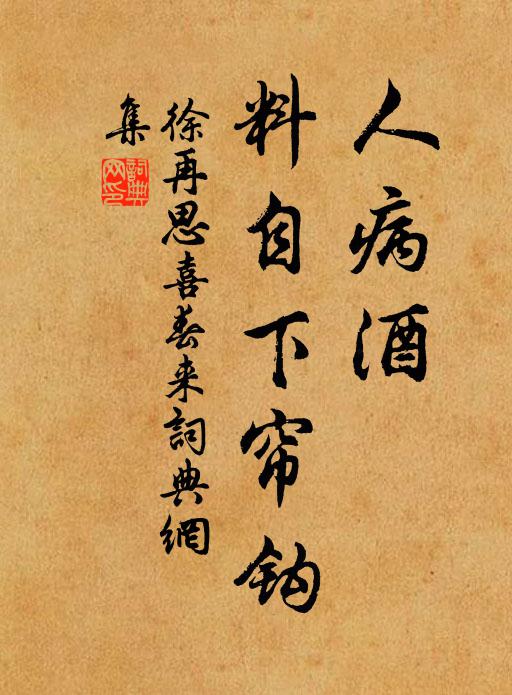 人病酒
料自下帘鈎
徐再思喜春来詞典網
集
詞典
网印